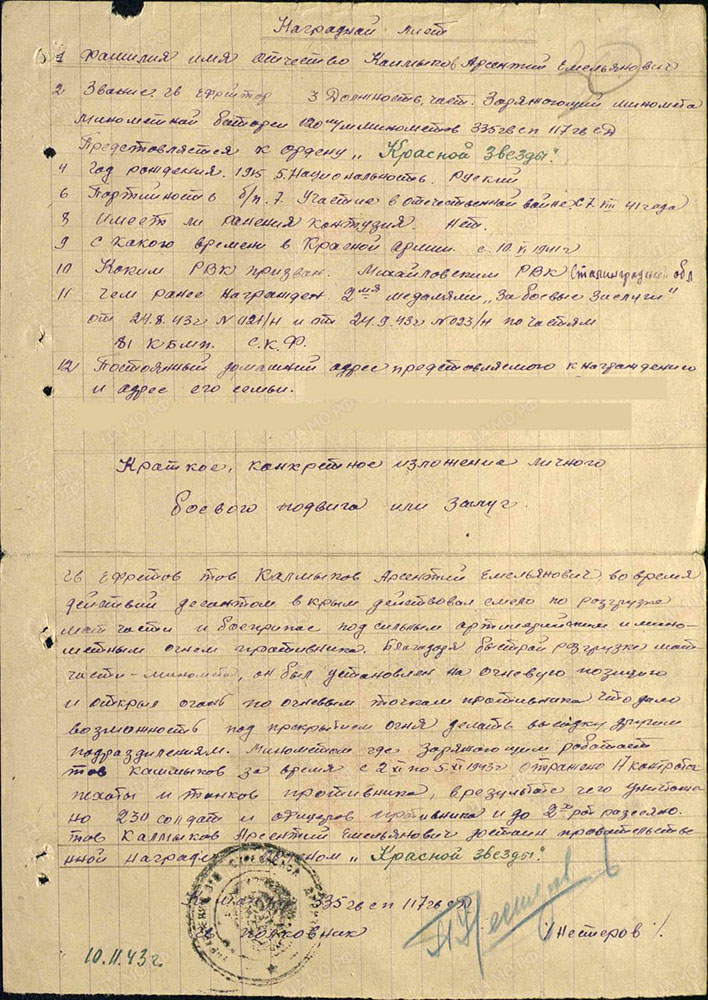 Наградной лист
1 Фамилия имя отчество Калмыков Арсентий Емельянович
2 Звание гв Ефрейтор 3 Должность, част. Заряжающий миномета
минометной батареи 120 м/м минометов 335 гв сп 117 гв сд
Предстовляется к ордену „Красной Звезды".
4 Год рождения. 1915 5. Национальность. Руский
6 Портийность б/п. 7. Участие в отечественной войне С 7 VIII 41 года
8 Имеет ли ранения контузия. Нет.
9 С какого времени в Красной Армии. с. 10. VI 1941 г
10 Каким РВК призван. Михайловским РВК Сталинградской обл
11 Чем ранее награжден 2мя медалями „За боевые заслуги"
от 24.8.43 г N 021/Н и от 24.9.43 г N 023/Н по частям
81 КБМП. С.К.Ф.
12 Постоянный домашний адрес предстовляемого к награждению
и адрес его семьи.
Краткое, конкретное изложение личного
боевого подвига или заслуг.
гв Ефрейтор тов Калмыков Арсентий Емельянович, во время
действий десантом в Крым действовал смело по розгрузке
мат части и боеприпас под сильным артилерийским и мино-
метным огнем противника. Благодаря быстрой розгрузке мат
части - миномета, он был установлен на огневую позицию
и открыл огонь по огневым точкам противника что дало
возможность под прекрытием огня делать высадку другим
подразделениям. Минометом где заряжающим работает
тов Калмыков за время с 2 XI по 5 XI 1943 г отражено 17 контратак
пехоты и танков противника, в результате чего уничтоже
но 230 солдат и офицеров противника и до 2х рот рассеяно.
тов Калмыков Арсентий Емельянович достоин провительстве
нной награды орденом „Красной Звезды".
335 гв сп 117 гв сд
гв полковник /Нестеров/.
10.11.43 г